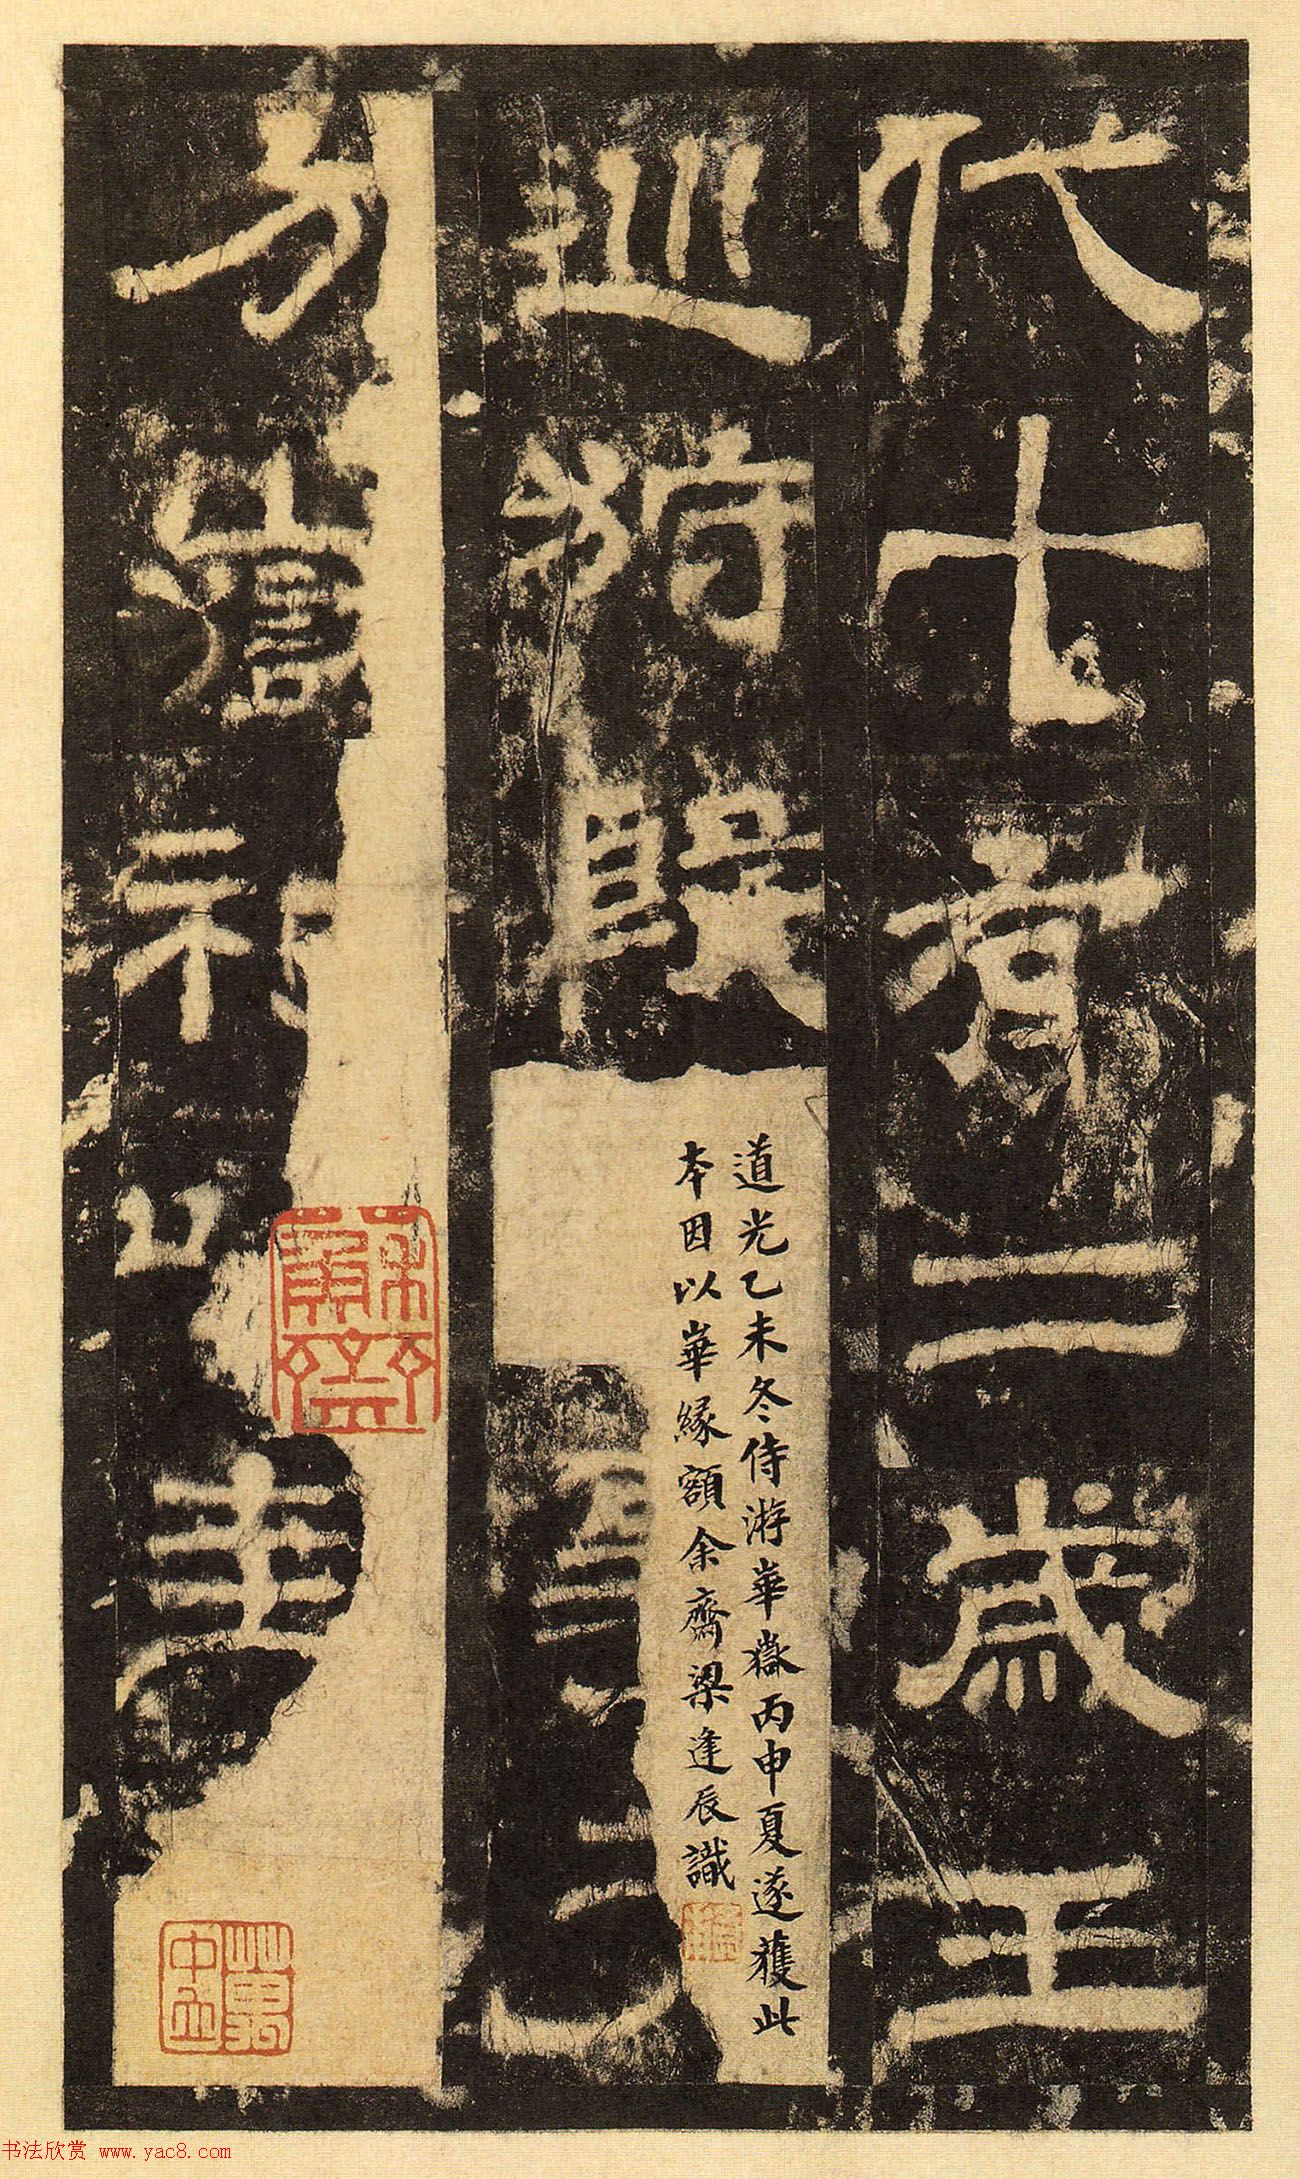 代十有二歲王
巡狩殷
道光乙未冬侍游華嶽丙申夏遂獲此
本因以華緣額余齋梁逢辰識
方嶽祀以圭
蘇齋
书法欣赏 www.yac8.com